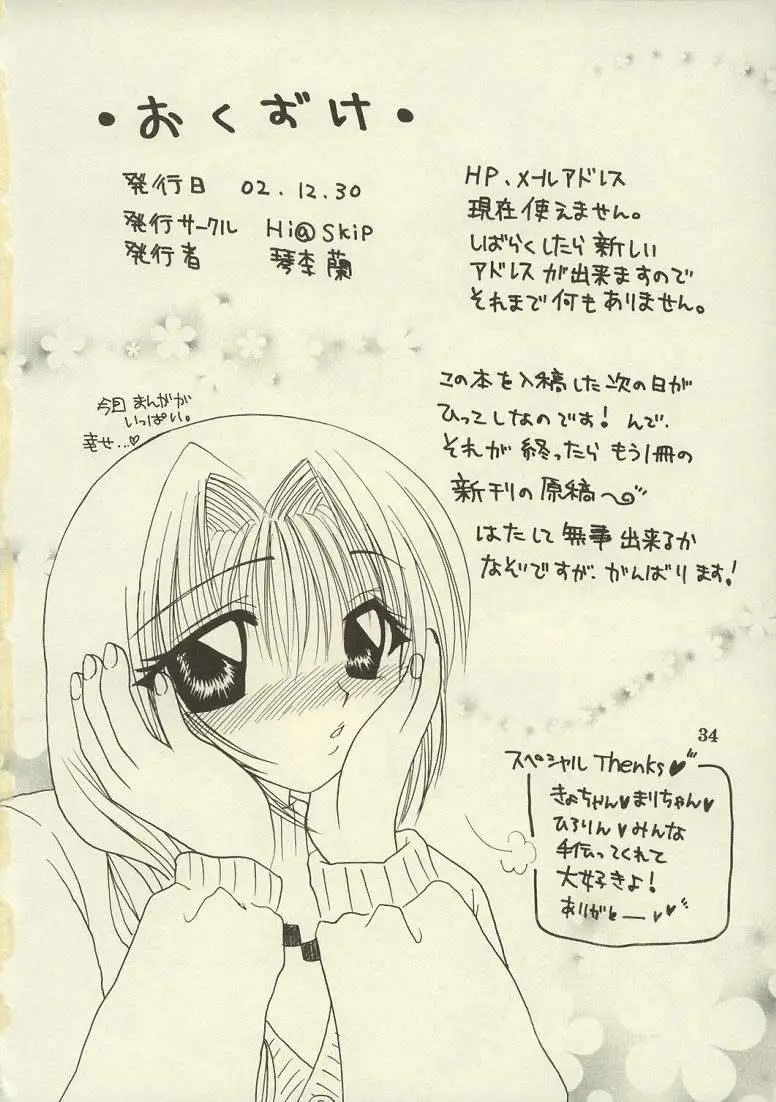 ・おくずけ・
発行日 02.12.30
発行サークル Hi@SkiP
発行者 琴李蘭
HP、メールアドレス
現在使えません。
しばらくしたら新しい
アドレスが出来ますので
それまで何もありません。
この本を入稿した次の日が
ひっこしなのです！んで、
それが終ったらもう1冊の
新刊の原稿〜
はたして無事出来るか
なぞですが、がんばります！
今回まんがが
いっぱい。
幸せ…♡
34
スペシャル Thenks♥
きょちゃん♥まりちゃん♥
ひろりん♥みんな
手伝ってくれて
大好きよ！
ありがとー♥♥